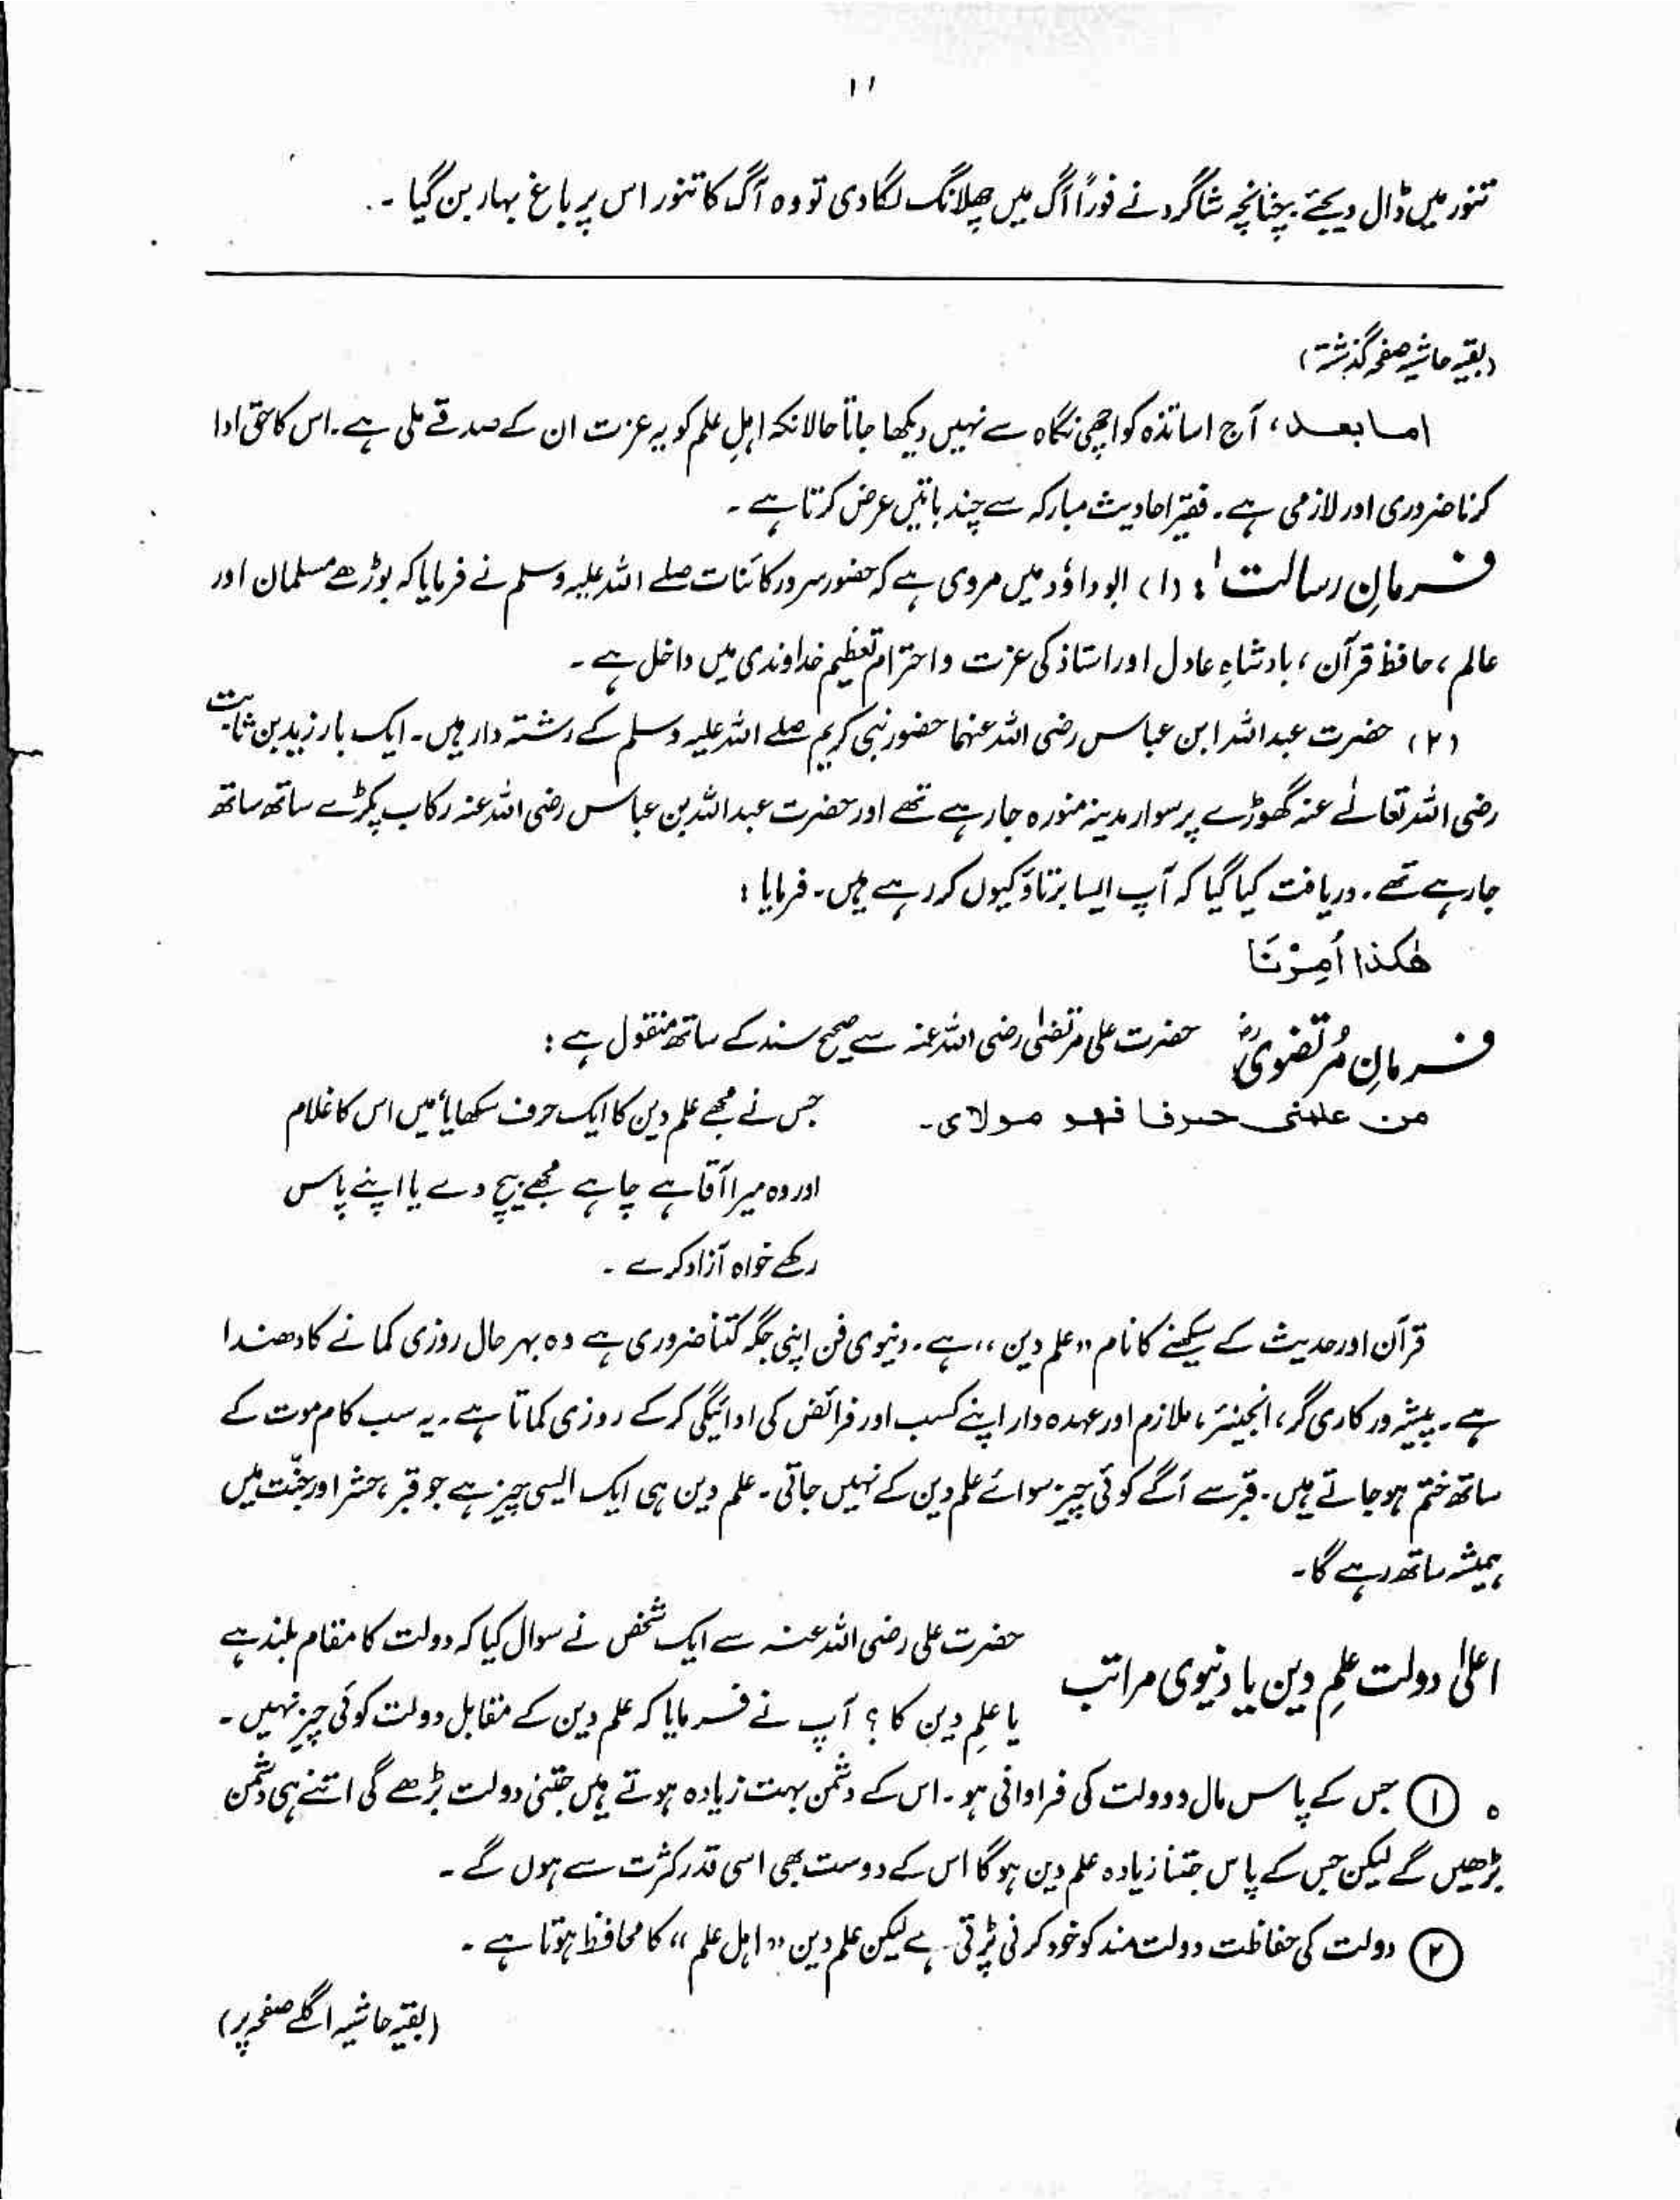 ۱۱
تنور میں ڈال دیجئے۔ چنانچہ شاگرد نے فوراً آگ میں چھلانگ لگا دی تو وہ آگ کا تنور اس پر باغ بہار بن گیا ۔
(بقیہ حاشیہ صفحہ گذشتہ)
اما بعد، آج اساتذہ کو اچھی نگاہ سے نہیں دیکھا جاتا حالانکہ اہلِ علم کو یہ عزت ان کے صدقے ملی ہے۔ اس کا حق ادا
کرنا ضروری اور لازمی ہے۔ فقیر احادیث مبارکہ سے چند باتیں عرض کرتا ہے ۔
فرمانِ رسالت : (۱) ابو داؤد میں مروی ہے کہ حضور سرور کائنات صلے اللہ علیہ وسلم نے فرمایا کہ بوڑھے مسلمان اور
عالم، حافظ قرآن، بادشاہِ عادل اور استاذ کی عزت و احترام تعظیم خداوندی میں داخل ہے ۔
(۲) حضرت عبداللہ ابن عباس رضی اللہ عنہما حضور نبی کریم صلے اللہ علیہ وسلم کے رشتہ دار ہیں۔ ایک بار زید بن ثابت
رضی اللہ تعالٰے عنہ گھوڑے پر سوار مدینہ منورہ جا رہے تھے اور حضرت عبداللہ بن عباس رضی اللہ عنہ رکاب پکڑے ساتھ ساتھ
جا رہے تھے۔ دریافت کیا گیا کہ آپ ایسا برتاؤ کیوں کر رہے ہیں۔ فرمایا :
ھٰکذا اُمِرْنَا
فرمانِ مُرتضوی رضؓ حضرت علی مرتضٰی رضی اللہ عنہ سے صحیح سند کے ساتھ منقول ہے :
من علمنی حرفا فھو مولای۔ جس نے مجھے علم دین کا ایک حرف سکھایا میں اس کا غلام
اور وہ میرا آقا ہے چاہے مجھے بیچ دے یا اپنے پاس
رکھے خواہ آزاد کرے ۔
قرآن اور حدیث کے سیکھنے کا نام "علم دین" ہے۔ دنیوی فن اپنی جگہ کتنا ضروری ہے وہ بہر حال روزی کمانے کا دھندا
ہے۔ پیشہ ور کاری گر، انجینئر، ملازم اور عہدہ دار اپنے کسب اور فرائض کی ادائیگی کر کے روزی کماتا ہے۔ یہ سب کام موت کے
ساتھ ختم ہو جاتے ہیں۔ قبر سے آگے کوئی چیز سوائے علم دین کے نہیں جاتی۔ علم دین ہی ایک ایسی چیز ہے جو قبر، حشر اور جنّت میں
ہمیشہ ساتھ رہے گا۔
اعلٰی دولت علمِ دین یا دنیوی مراتب حضرت علی رضی اللہ عنہ سے ایک شخص نے سوال کیا کہ دولت کا مقام بلند ہے
یا علمِ دین کا؟ آپ نے فرمایا کہ علم دین کے مقابل دولت کوئی چیز نہیں ۔
ہ ① جس کے پاس مال و دولت کی فراوانی ہو۔ اس کے دشمن بہت زیادہ ہوتے ہیں جتنی دولت بڑھے گی اتنے ہی دشمن
بڑھیں گے لیکن جس کے پاس جتنا زیادہ علم دین ہوگا اس کے دوست بھی اسی قدر کثرت سے ہوں گے ۔
② دولت کی حفاظت دولت مند کو خود کرنی پڑتی ہے لیکن علم دین "اہل علم" کا محافظ ہوتا ہے ۔
(بقیہ حاشیہ اگلے صفحہ پر)